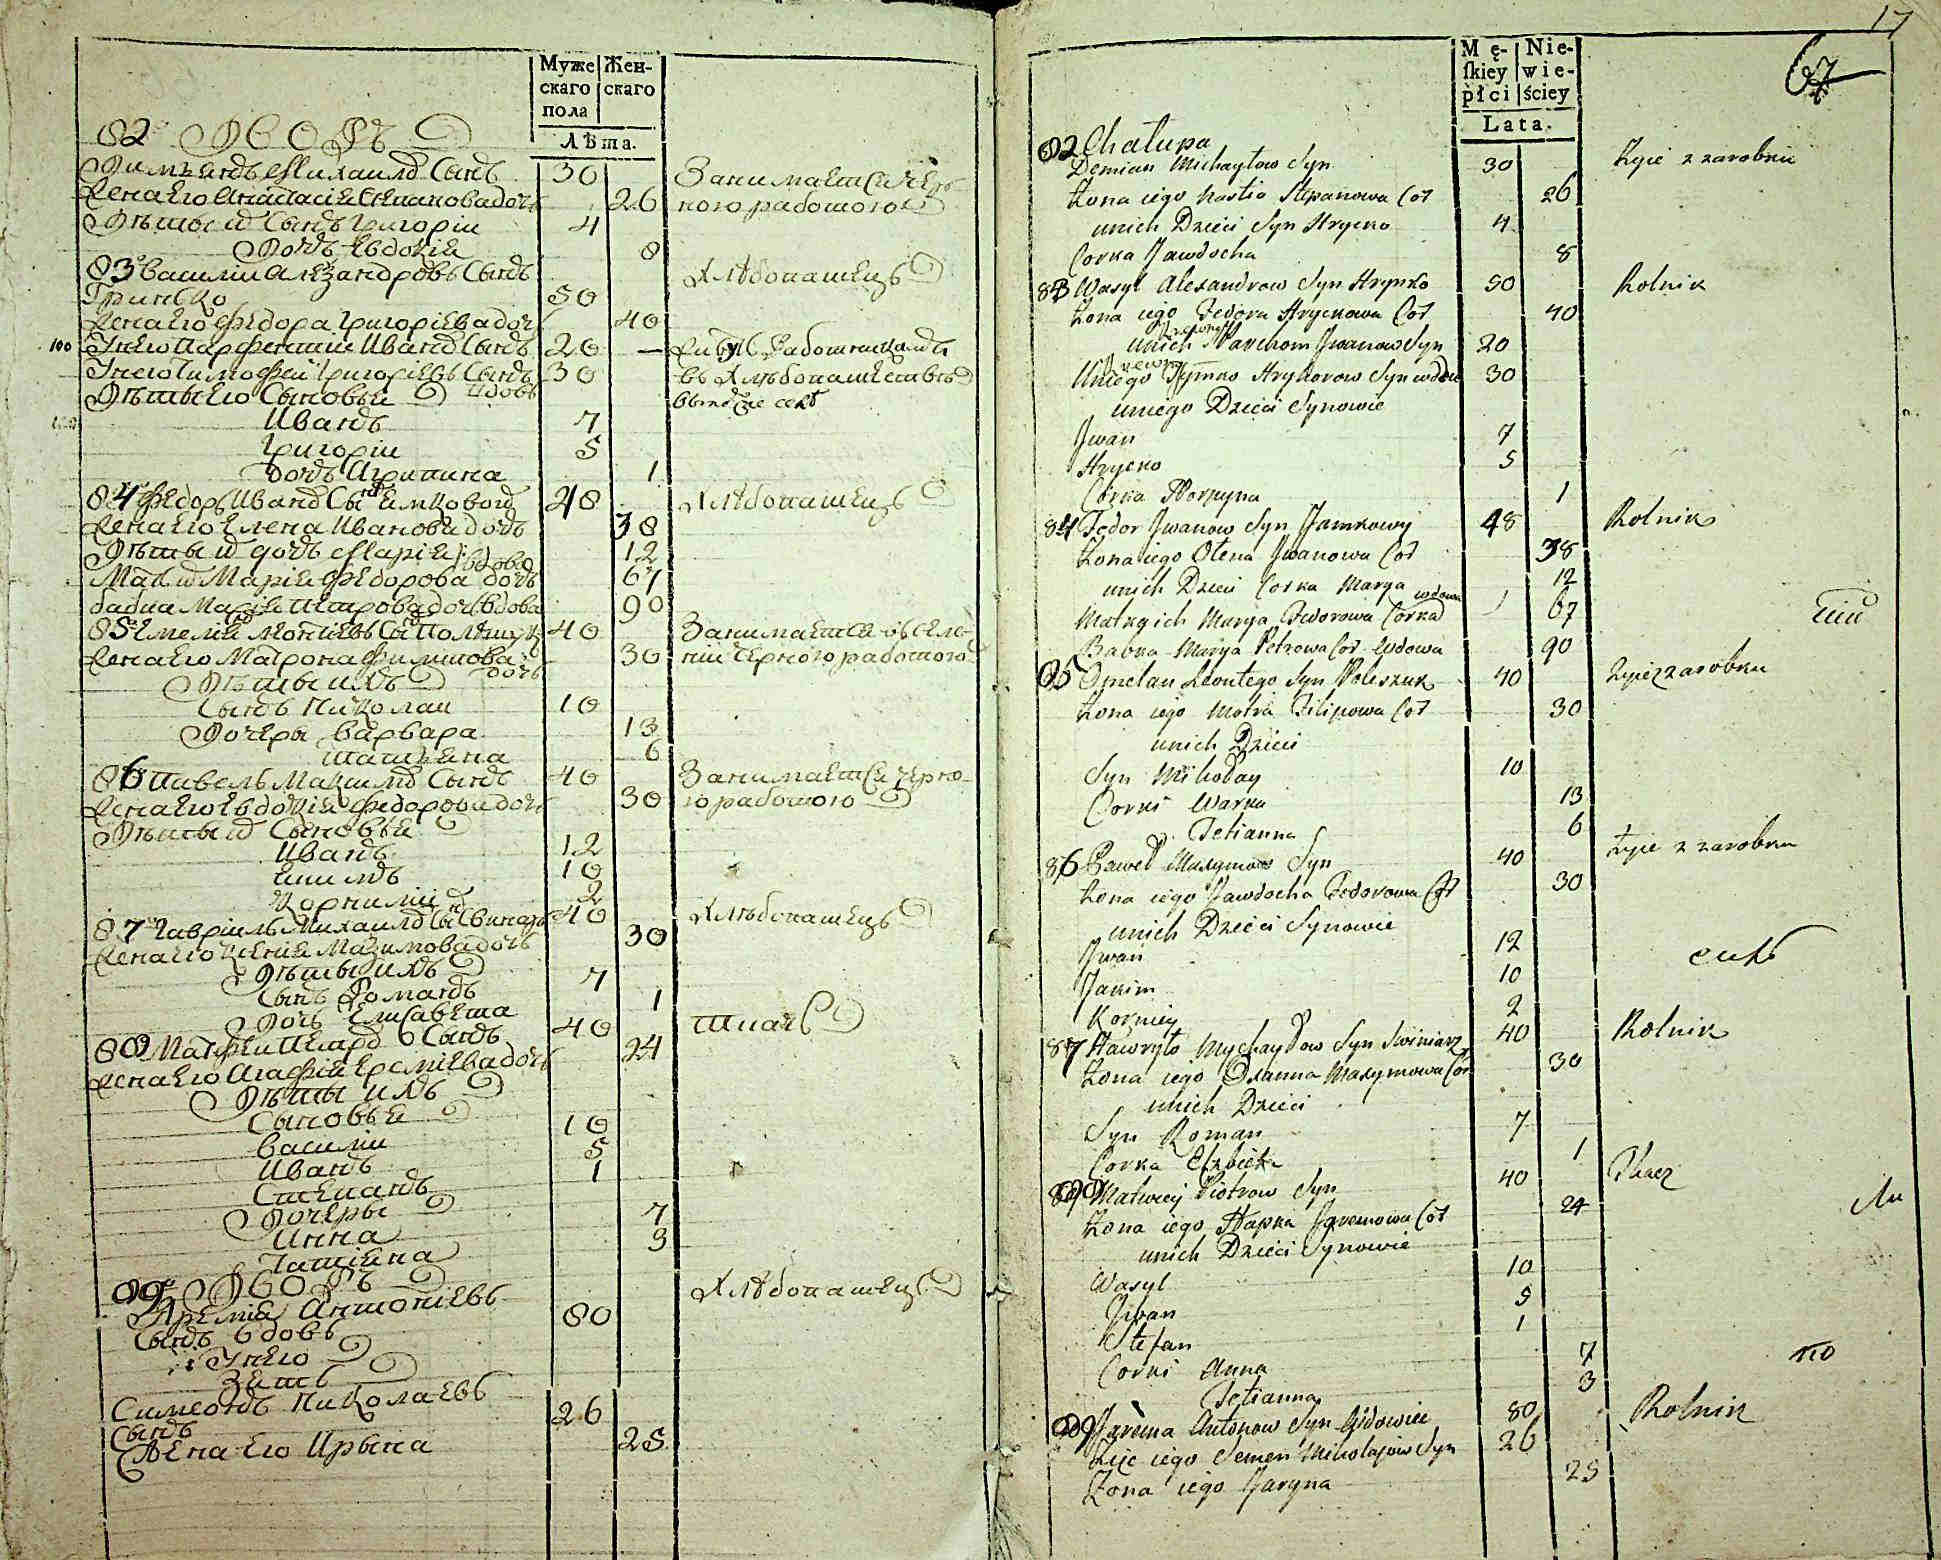 Муже Жен-
скаго скаго
пола
Лѣта.
82 Дворъ
Димѣанъ Михаиловъ Сынъ 30 Занимается чер-
Жена его Анастасіа Степановадочь 26 ного работою
Дѣти ихъ Сынъ Григоріи 4
Дочь Евдокіа 8
83 Василіи Алеѯандровъ Сынъ Хлѣбопашецъ
Гринько 50
Жена его Федора Григоріевадочь 40
100 Унего Парфентіи Ивановъ Сынъ 20 — живутъ работникамъ
Унего Тимофеи Григоріевъ Сынъ 30 въ хлѣбопашествѣ
Дѣти его Сыновья вдовъ
Иванъ 7
Григоріи 5
Дочь Агрипина 1
84 Федоръ Ивановъ Сынъ Емковои 48 Хлѣбопашецъ
Жена его Елена Ивановадочь 38
Дѣти ихъ дочь Маріа 12
Мать ихъ Маріа Федорова дочь вдова 67
бабка Маріа Петровадочь вдова 90
85 Емеліа Леонтіевъ Сынъ Полѣщукъ 40 Занимается въ селе-
Жена его Матрона Филипова дочь 30 ніи черного работою
Дѣти ихъ
Сынъ Николаи 10
Дочеры Варвара 13
Татіана 6
86 Павелъ Маѯимовъ Сынъ 40 Занимается черно-
Жена его Евдокіа Федоровадочь 30 го работою
Дѣти ихъ Сыновья
Иванъ 12
Екимъ 10
Корниліи 2
87 Гавріилъ Михаиловъ Сынъ Свинаръ 40 Хлѣбопашецъ
Жена его Ксеніа Маѯимовадочь 30
Дѣти ихъ
Сынъ Романъ 7
Дочь Елисавета 1
88 Матфеи Петровъ Сынъ 40 Ткачъ
Жена его Агафіа Еремѣевадочь 24
Дѣти ихъ
Сыновья
Василіи 10
Иванъ 5
Степанъ 1
Дочеры
Анна 7
Татіана 3
89 Дворъ Хлѣбопашецъ
Яремѣа Антоніевъ 80
Сынъ вдовъ
Унего
Зять
Симеонъ Николаевъ 26
Сынъ
Жена его Ирына 25
17
67
Mę- Nie-
skiey wie-
płci ściey
Lata.
82 Chałupa
Demian Michayłow Syn 30 Żyie z zarobku
Żona iego Nastia Stepanowa Cor 26
unich Dzieci Syn Hrycko 4
Corka Jawdocha 8
83 Wasyl Alexandrow Syn Hrynko 50 Rolnik
Żona iego Fedora Hryckowa Cor 40
unich Krewny Parchom Jwanow Syn 20
Uniego Krewny Tymko Hryhorow Syn wdow 30
uniego Dzieci Synowie
Jwan 7
Hrycko 5
Corka Horpyna 1
84 Fedor Jwanow Syn Jamkowy 48 Rolnik
Żona iego Ołena Jwanowa Cor 38
unich Dzieci Corka Marya 12
Matka ich Marya Fedorowa Corka wdowa 67
Babka Marya Petrowa Cor Wdowa 90
85 Omelan Leontego Syn Poleszuk 40 Żyie z zarobku
Żona iego Motra Filipowa Cor 30
unich Dzieci
Syn Mikołay 10
Corki Warka 13
Tetianna 6
86 Paweł Maxymow Syn 40 Żyie z zarobku
Żona iego Jawdocha Fedorowa Cor 30
unich Dzieci Synowie
Jwan 12
Jakim 10
Korniey 2
87 Hawryło Mychayłow Syn Swiniarz 40 Rolnik
Żona iego Oxanna Maxymowa Cor 30
unich Dzieci
Syn Roman 7
Corka Elzbieta 1
88 Matwiey Piotrow Syn 40 Tkacz
Żona iego Hapka Jaremowa Cor 24
unich Dzieci Synowie
Wasyl 10
Jwan 5
Stefan 1
Corki Anna 7
Tetianna 3
89 Jarema Antonow Syn Wdowiec 80 Rolnik
Zięć iego Semen Mikołajow Syn 26
Żona iego Jaryna 25